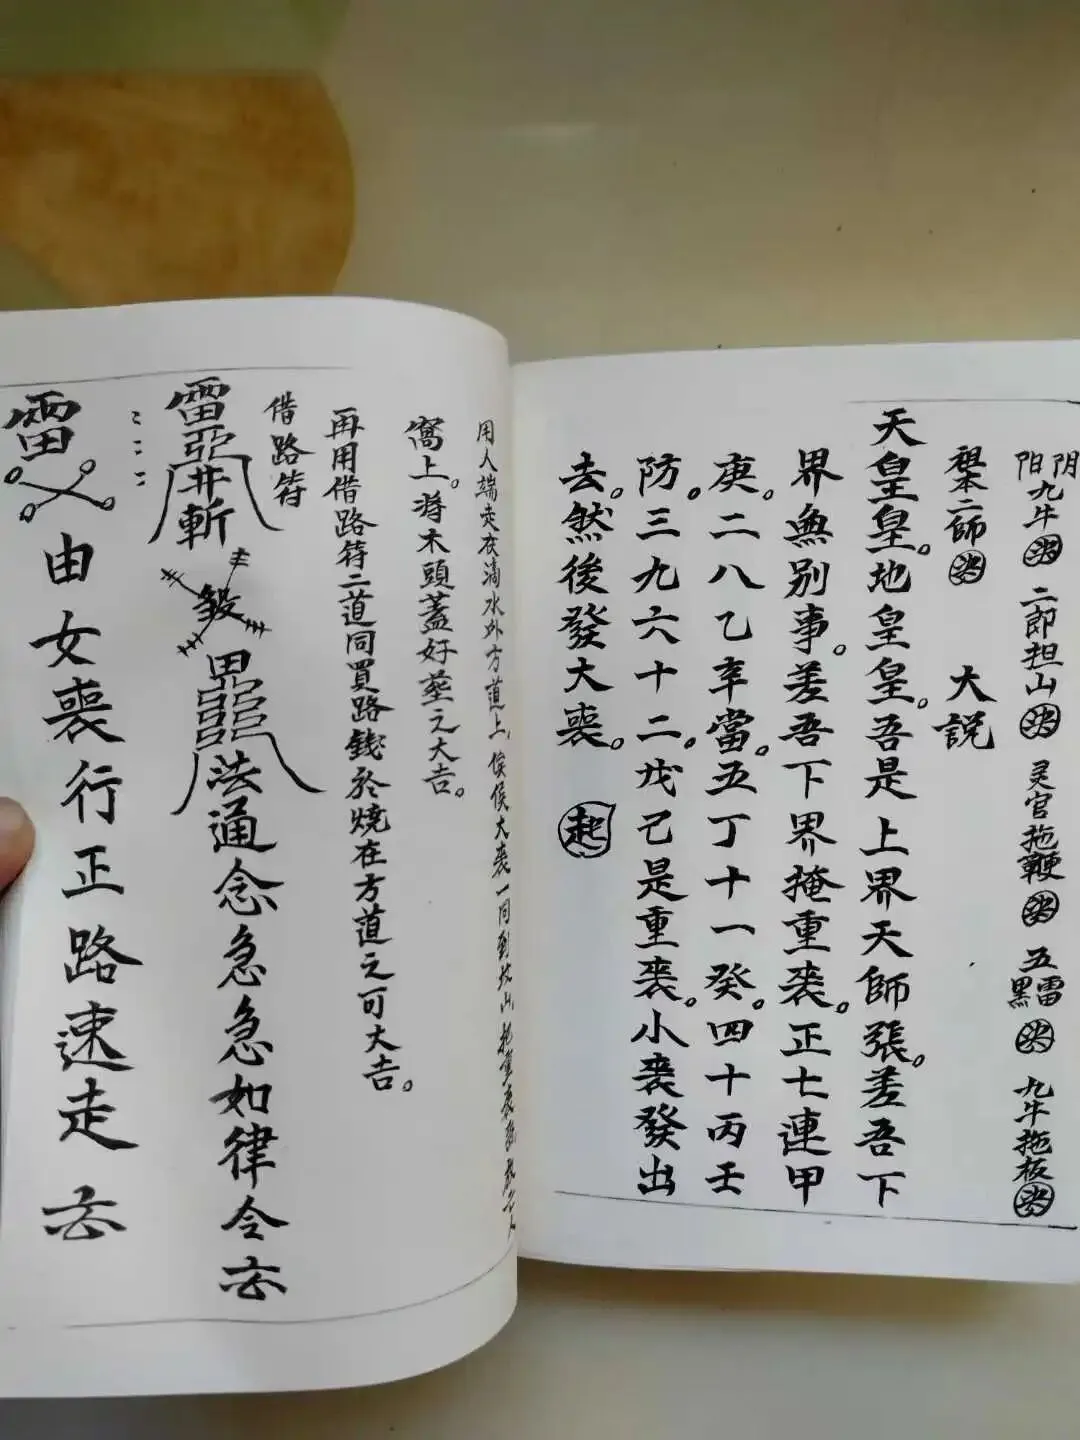 阴阳九牛 二郎担山 灵官拖鞭 五雷 九牛拖板
祖本二師 大説
天皇皇。地皇皇。吾是上界天師張。差吾下
界無别事。差吾下界掩重喪。正七連甲
庚。二八乙辛當。五丁十一癸。四十丙壬
防。三九六十二。戊己是重喪。小喪發出
去。然後發大喪。 起
用人端走在滴水外方道上，俟侯大喪一同到
窩上。将木頭蓋好塟之大吉。
再用借路符二道同買路錢於燒在方道之可大吉。
借路符
雷 法通念急急如律令
雷 由女喪行正路速走